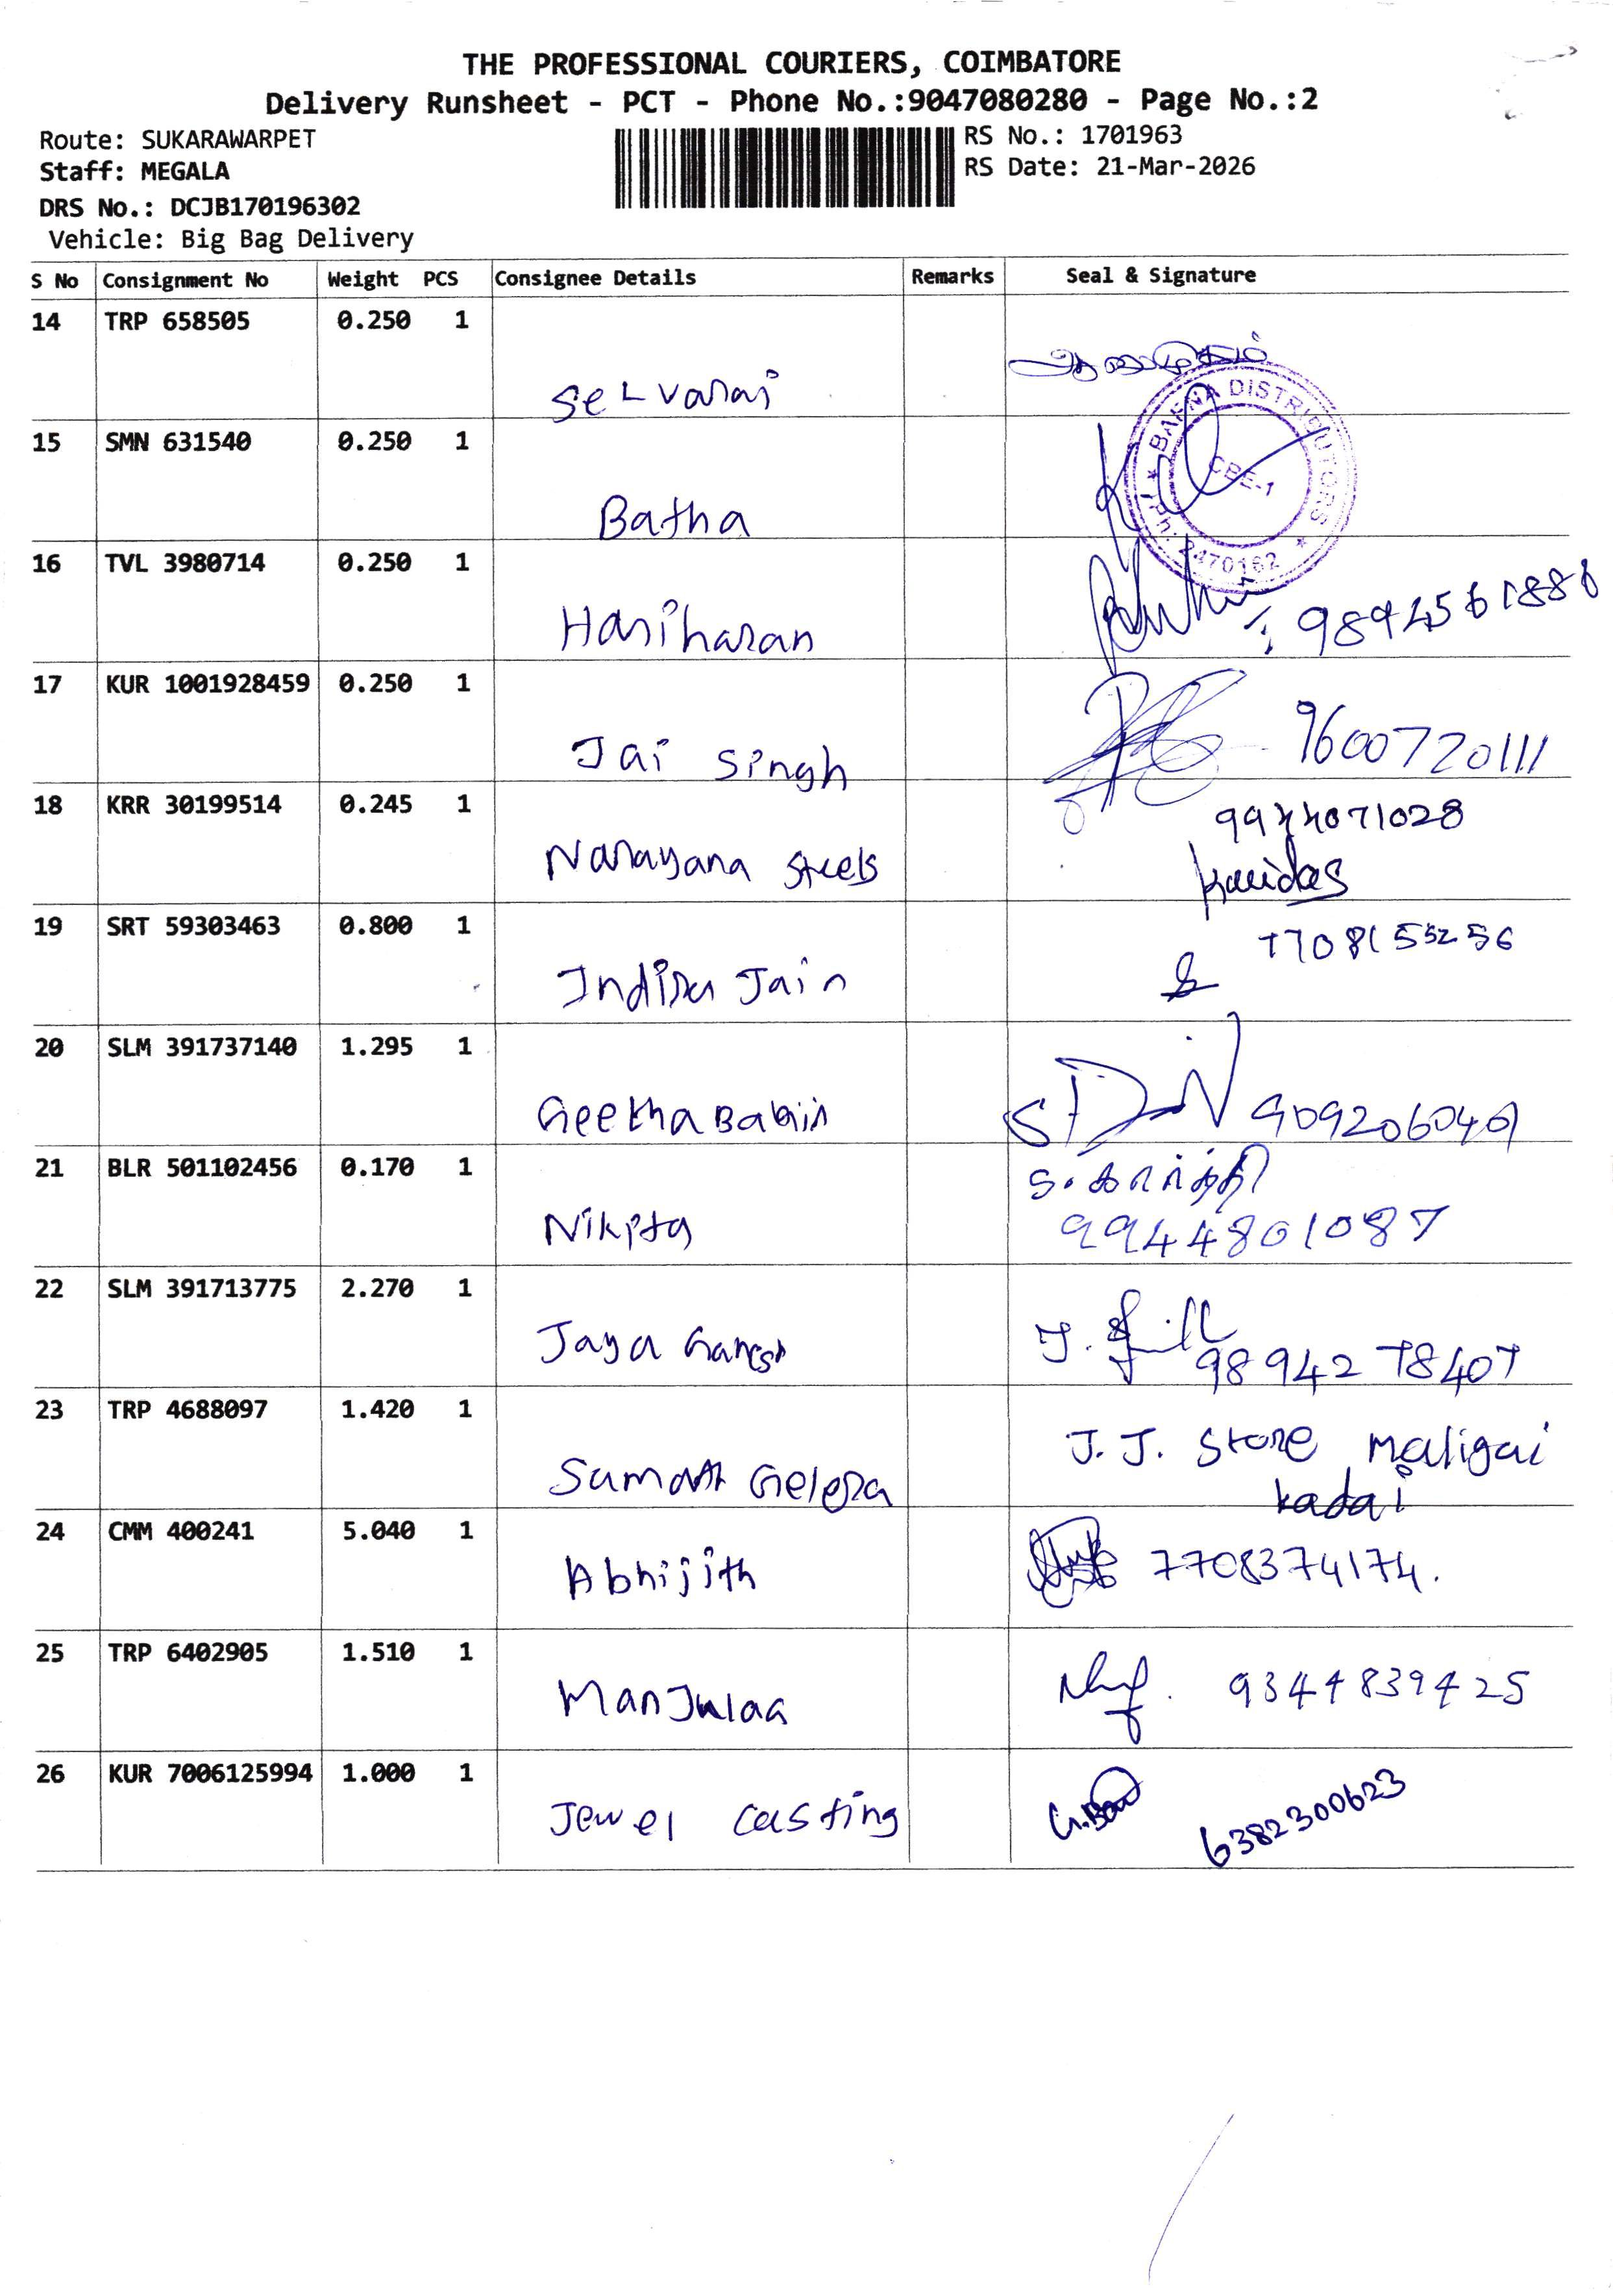 THE PROFESSIONAL COURIERS, COIMBATORE
Delivery Runsheet - PCT - Phone No.:9047080280 - Page No.:2
Route: SUKARAWARPET
RS No.: 1701963
Staff: MEGALA
RS Date: 21-Mar-2026
DRS No.: DCJB170196302
Vehicle: Big Bag Delivery
S No Consignment No Weight PCS Consignee Details Remarks Seal & Signature
14 TRP 658505 0.250 1
Selvaraj
15 SMN 631540 0.250 1
DISTRIBUTORS
CBE-1
Ph: 2470162
Batha
16 TVL 3980714 0.250 1
Hariharan
17 KUR 1001928459 0.250 1
Jai Singh 9600720111
18 KRR 30199514 0.245 1
Narayana Steels
19 SRT 59303463 0.800 1
Jain
20 SLM 391737140 1.295 1
Geetha
21 BLR 501102456 0.170 1
Nikita 9944801087
22 SLM 391713775 2.270 1
Jaya Ganesh 9894278407
23 TRP 4688097 1.420 1
J.J. Store Maligai
kadai
24 CMM 400241 5.040 1
Abhijith 7708374174.
25 TRP 6402905 1.510 1
Manjulaa 9344839425
26 KUR 7006125994 1.000 1
Jewel Casting 6382300623